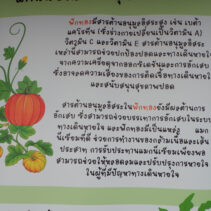 ฟักทองมีสารต้านอนุมูลอิสระสูง เช่น เบต้า
แคโรทีน (ซึ่งร่างกายเปลี่ยนเป็นวิตามิน A)
วิตามิน C และวิตามิน E สารต้านอนุมูลอิสระ
เหล่านี้สามารถช่วยปกป้องปอดและทางเดินหายใจ
จากความเครียดจากออกซิเดชันและการอักเสบ
ซึ่งอาจลดความเสี่ยงของการติดเชื้อทางเดินหายใจ
และสนับสนุนสุขภาพปอด
สารต้านอนุมูลอิสระในฟักทองยังมีผลต้านการ
อักเสบ ซึ่งสามารถช่วยบรรเทาการอักเสบในระบบ
ทางเดินหายใจ และฟักทองมีเป็นแหล่ง แมก
นีเซียมที่ดี ช่วยการทำงานของกล้ามเนื้อและเส้น
ประสาท การรับประทานแมกนีเซียมเพียงพอ
สามารถช่วยให้หลอดลมและปรับปรุงการหายใจ
ในผู้ที่มีปัญหาทางเดินหายใจ